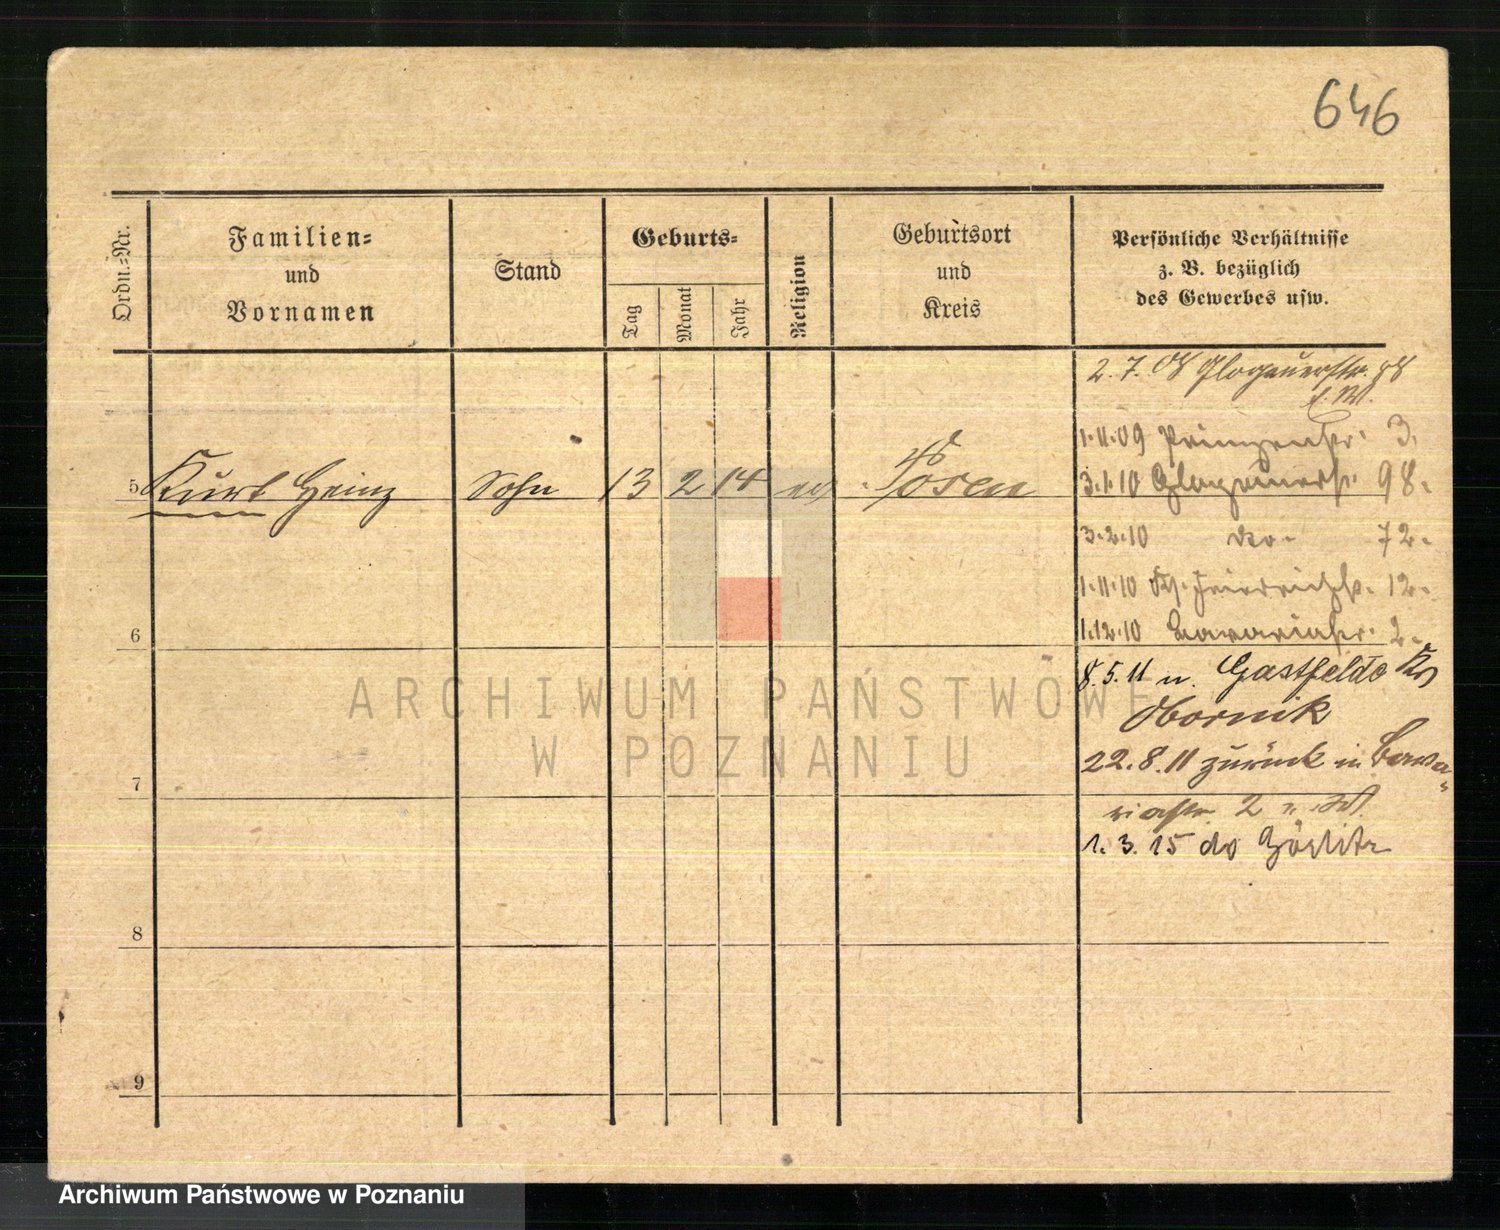 646
Ordn.-Nr.
Familien-
und
Vornamen
Stand
Geburts-
Tag
Monat
Jahr
Religion
Geburtsort
und
Kreis
Persönliche Verhältnisse
z. B. bezüglich
des Gewerbes usw.
2. 7. 08 Glogauerstr.
1.11.09 Prinzenstr. 3.
5 Kurt Heinz Sohn 13 2 14 ev Posen
3.1.10 Glogauerstr. 98.
3.2.10 do. 72.
1.11.10 Friedrichstr. 12.
6
1.12.10 Bavariastr. 2.
8 5. 11 n. Gastfelde Krs
Obornik
22. 8. 11 zurück in Bava-
7
riastr. 2
1. 3. 15 do Görlitz
8
9
ARCHIWUM PAŃSTWOWE
W POZNANIU
Archiwum Państwowe w Poznaniu